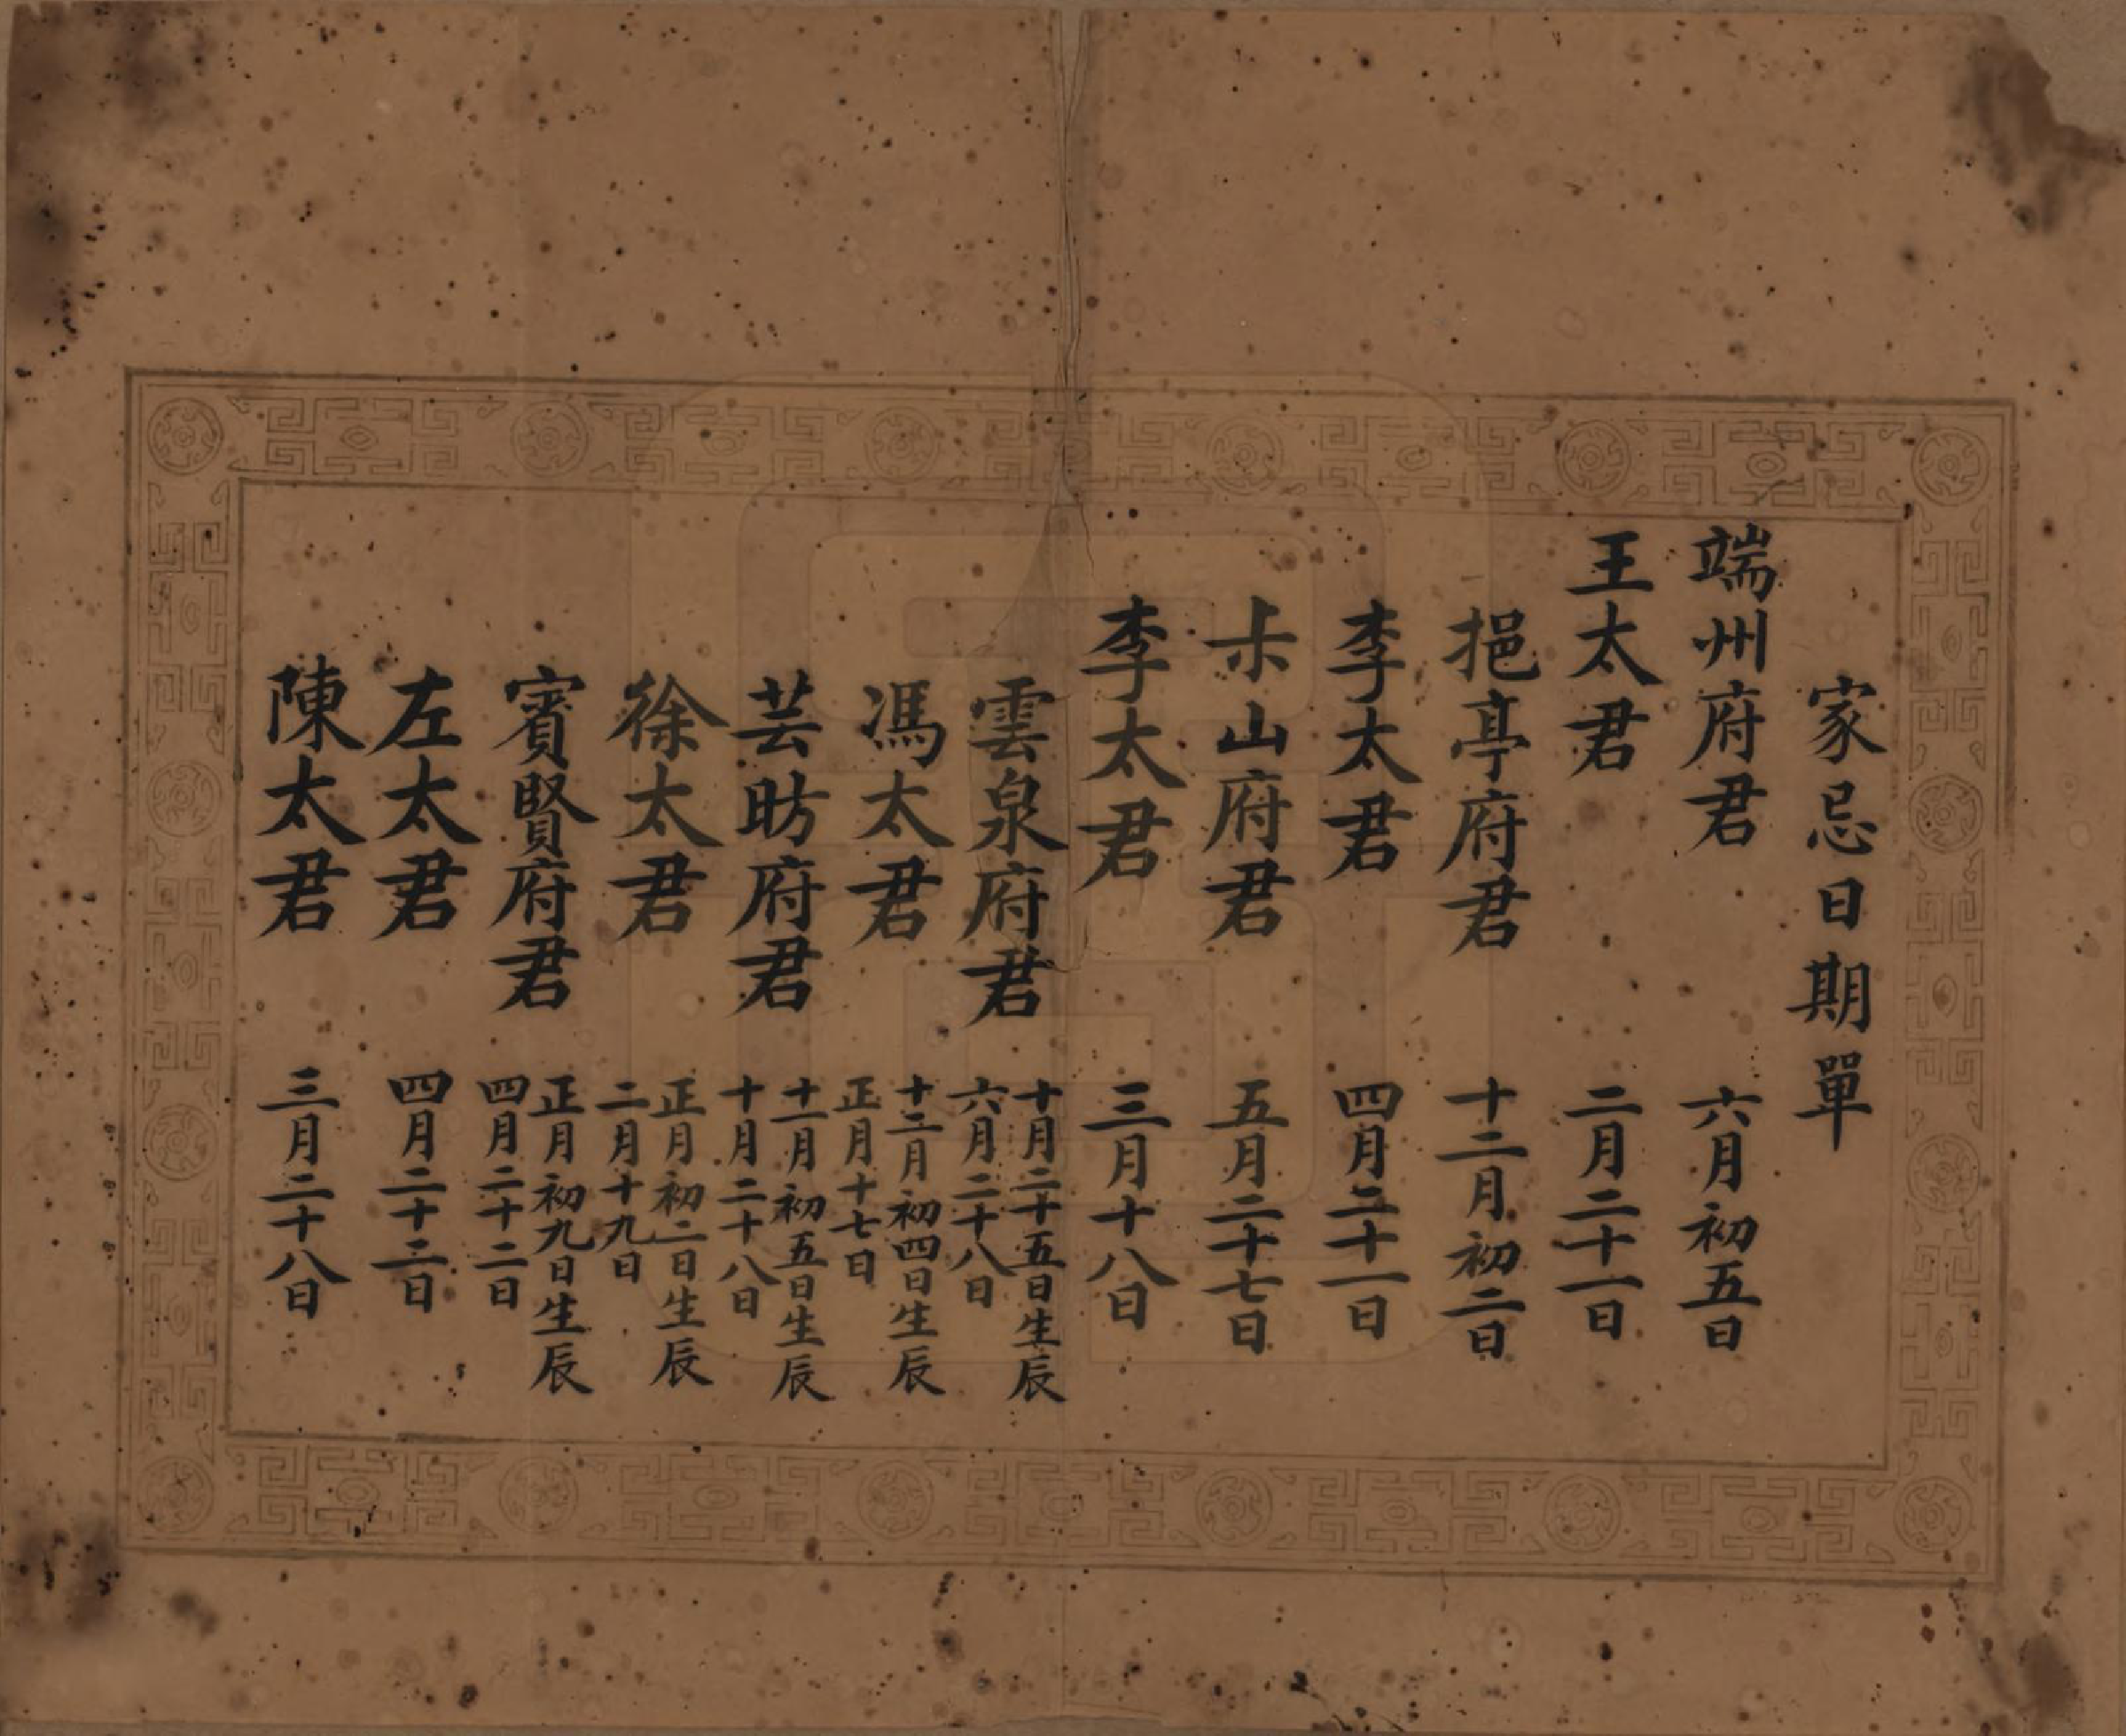 家忌日期單
端州府君 六月初五日
王太君 二月二十一日
挹亭府君 十二月初二日
李太君 四月二十一日
山府君 五月二十七日
李太君 三月十八日
雲泉府君 十月二十五日生辰
六月二十八日
馮太君 十二月初四日生辰
正月十七日
芸昉府君 十一月初五日生辰
十月二十八日
徐太君 正月初二日生辰
二月十九日
賓賢府君 正月初九日生辰
四月二十二日
左太君 四月二十二日
陳太君 三月二十八日